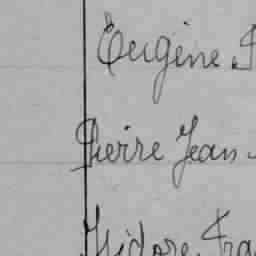 Eugène
Pierre Jean
Isidore Fra